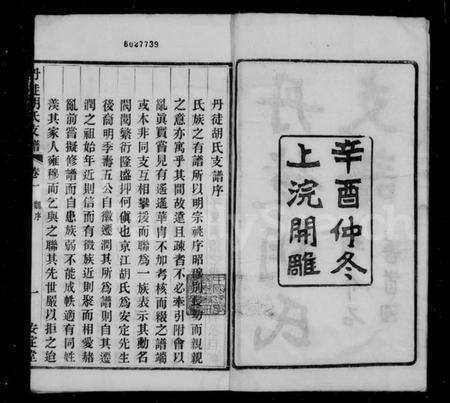 6027739
辛酉仲冬
上浣開雕
丹徒胡氏支譜序
氏族之有譜所以明宗祧序昭穆別長幼而親親
之意亦寓乎其間故遠且疎者不必牽引附會以
亂真貿嘗見有遙遙華冑不加考核而綴之譜端
或本非同支互相攀援而聯為一族表示其動名
閥閱繁衍隆盛抑何傎也京江胡氏為安定先生
後裔明季壽五公自徽遷潤其所為譜則自其遷
潤之祖始年近則信而有徵族近則聚而相愛赭
亂前嘗擬修譜而自患族弱不能成帙適有同姓
羨其家人雍穆而乞與之聯其先世嚴以拒之迨
丹徒胡氏支譜 卷一 序
一
安定堂